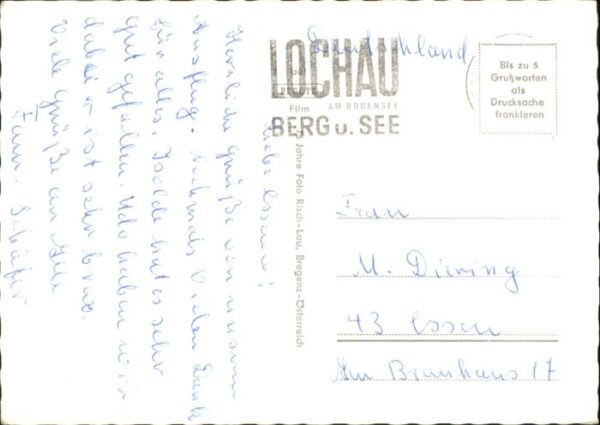 Liebe Essener!
Herzliche Grüße von unserm
Ausflug. Nochmals vielen Dank
für alles. Isolde hat es sehr
gut gefallen. Udo haben wir
dabei er ist sehr brav.
Viele Grüße an Alle
Fam. Schäfer
Deutschland
LOCHAU
AM BODENSEE
Film
BERG u. SEE
Bis zu 5
Grußworten
als
Drucksache
frankieren
Jahre Foto Risch-Lau, Bregenz-Österreich
Frau
M. Diering
43 Essen
Am Brauhaus 17